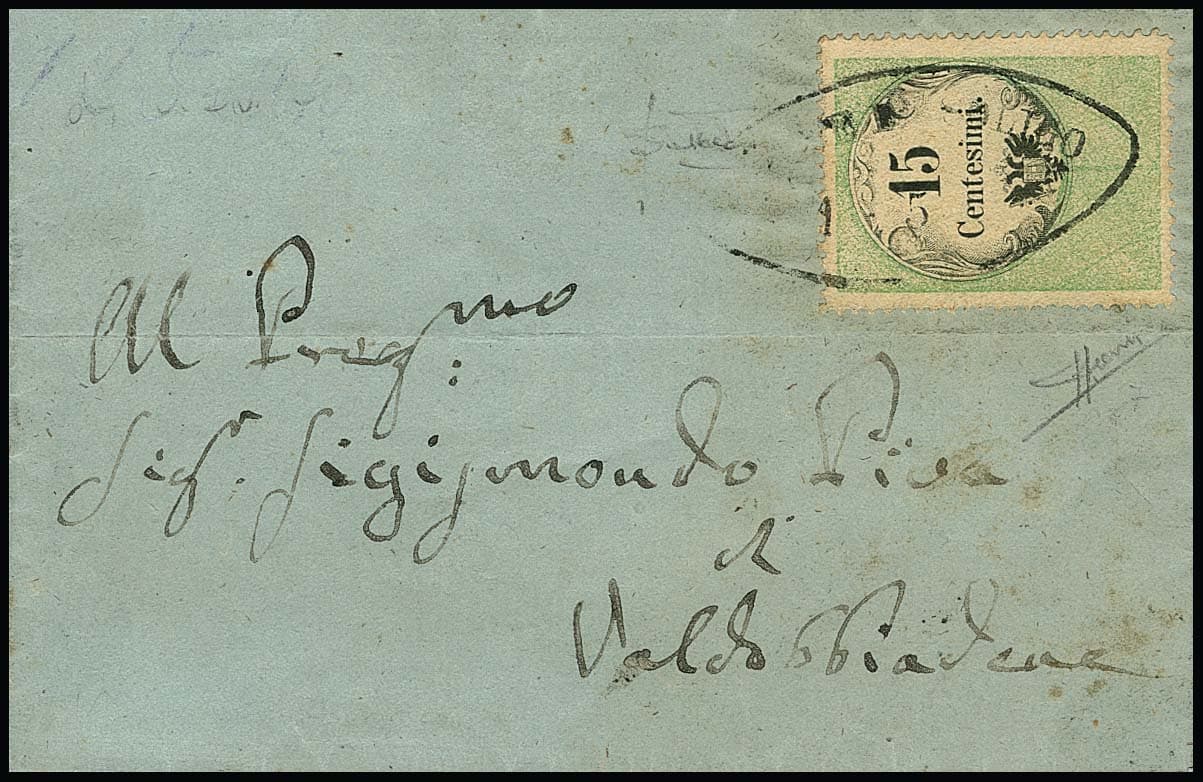 15
Centesimi.
Al Preg.mo
Sigr. Sigismondo Piva
di
Valdobbiadene